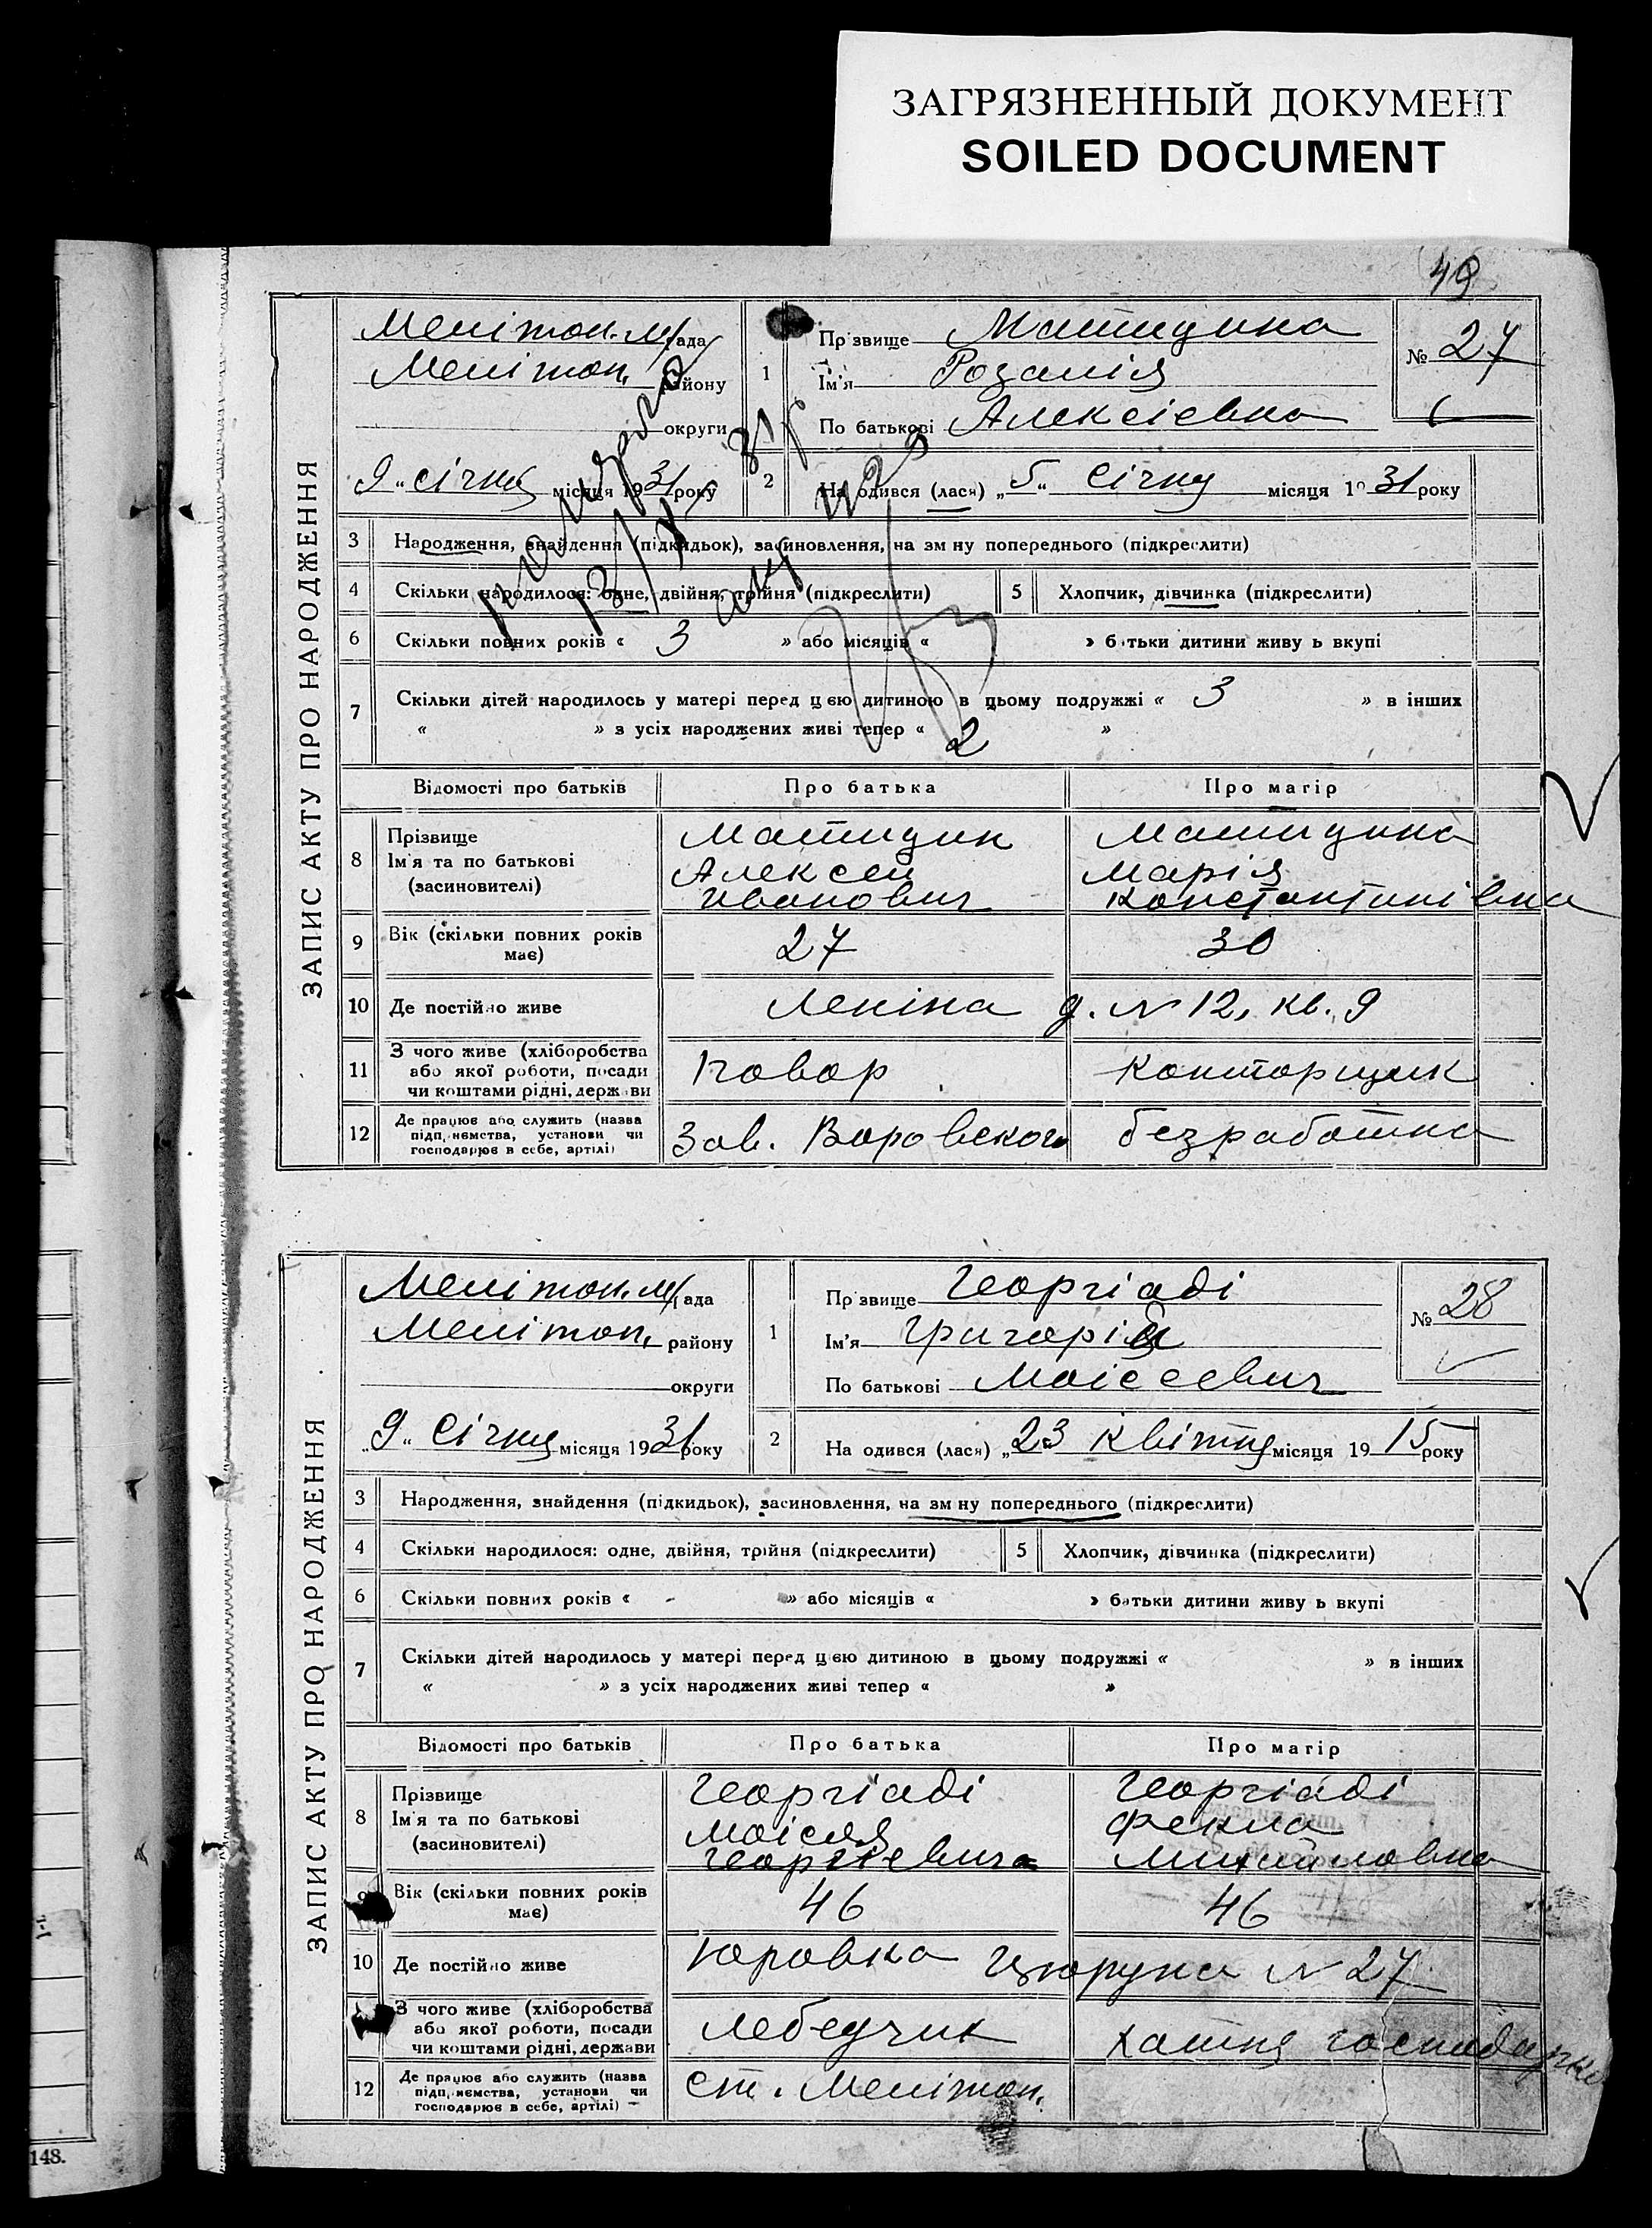 ЗАГРЯЗНЕННЫЙ ДОКУМЕНТ
SOILED DOCUMENT
49
ЗАПИС АКТУ ПРО НАРОДЖЕННЯ
Мелітоп. м/рада
Мелітоп. району
округи
9 " січня місяця 1931 року
1 Прізвище Матицина
Ім'я Розалія
По батькові Алексієвна
№ 27
2 На одився (лася) „ 5 " Січня місяця 19 31 року
3 Народження, знайдення (підкидьок), засиновлення, на зм ну попереднього (підкреслити)
4 Скільки народилося: одне, двійня, трійня (підкреслити) 5 Хлопчик, дівчинка (підкреслити)
6 Скільки повних років « 3 » або місяців « » батьки дитини живу ь вкупі
7 Скільки дітей народилось у матері перед цією дитиною в цьому подружжі « 3 » в інших
« » з усіх народжених живі тепер « 2 »
Відомості про батьків Про батька Про матір
8 Прізвище Ім'я та по батькові (засиновителі)
Матицин Алексей Иванович
Матицина Марія Константинівна
9 Вік (скільки повних років має) 27 30
10 Де постійно живе Леніна д. № 12, кв. 9
11 З чого живе (хліборобства або якої роботи, посади чи коштами рідні, держави Повар Конторщик
12 Де працює або служить (назва підп, иємства, установи чи господарює в себе, артілі) Зав. Воровского безработна
ЗАПИС АКТУ ПРО НАРОДЖЕННЯ
Мелітоп. м/рада
Мелітоп. району
округи
„ 9 " Січня місяця 1931 року
1 Прізвище Георгіаді
Ім'я Григорій
По батькові Моісеевич
№ 28
2 На одився (лася) „ 23 Квітня місяця 19 15 року
3 Народження, знайдення (підкидьок), засиновлення, на зм ну попереднього (підкреслити)
4 Скільки народилося: одне, двійня, трійня (підкреслити) 5 Хлопчик, дівчинка (підкреслити)
6 Скільки повних років « - » або місяців « » батьки дитини живу ь вкупі
7 Скільки дітей народилось у матері перед цією дитиною в цьому подружжі « » в інших
« » з усіх народжених живі тепер « »
Відомості про батьків Про батька Про матір
8 Прізвище Ім'я та по батькові (засиновителі)
Георгіаді Моісея Георгіевича
Георгіаді Фекла Михайловна
9 Вік (скільки повних років має) 46 46
10 Де постійно живе Юровка Цюрупа № 27
З чого живе (хліборобства або якої роботи, посади чи коштами рідні, держави Лебедчик хатня господарка
12 Де працює або служить (назва підп, иємства, установи чи господарює в себе, артілі) ст. Мелітоп.
148.